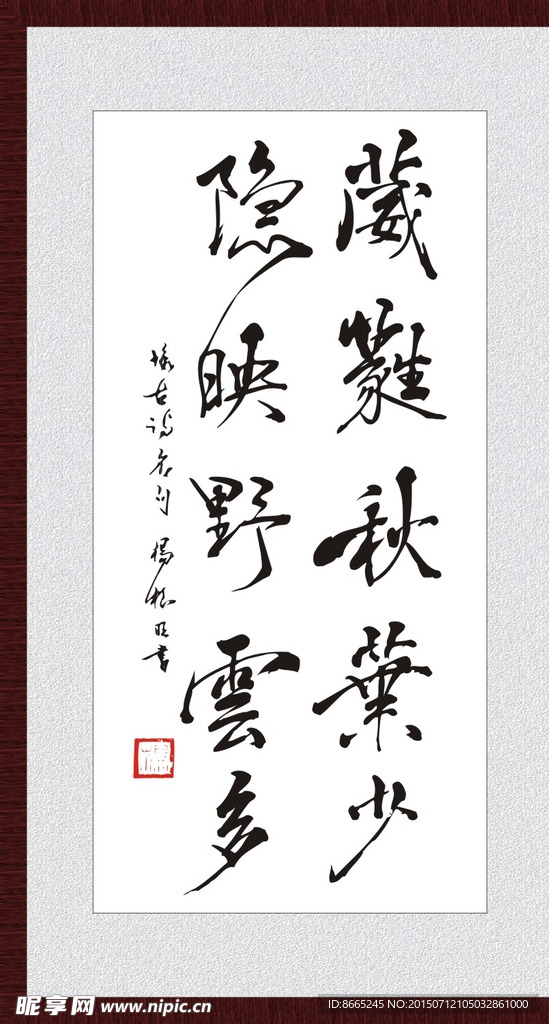 葳蕤秋葉少
隐映野雲多
古詩名句 楊
書
昵享网 www.nipic.cn
ID:8665245 NO:20150712105032861000